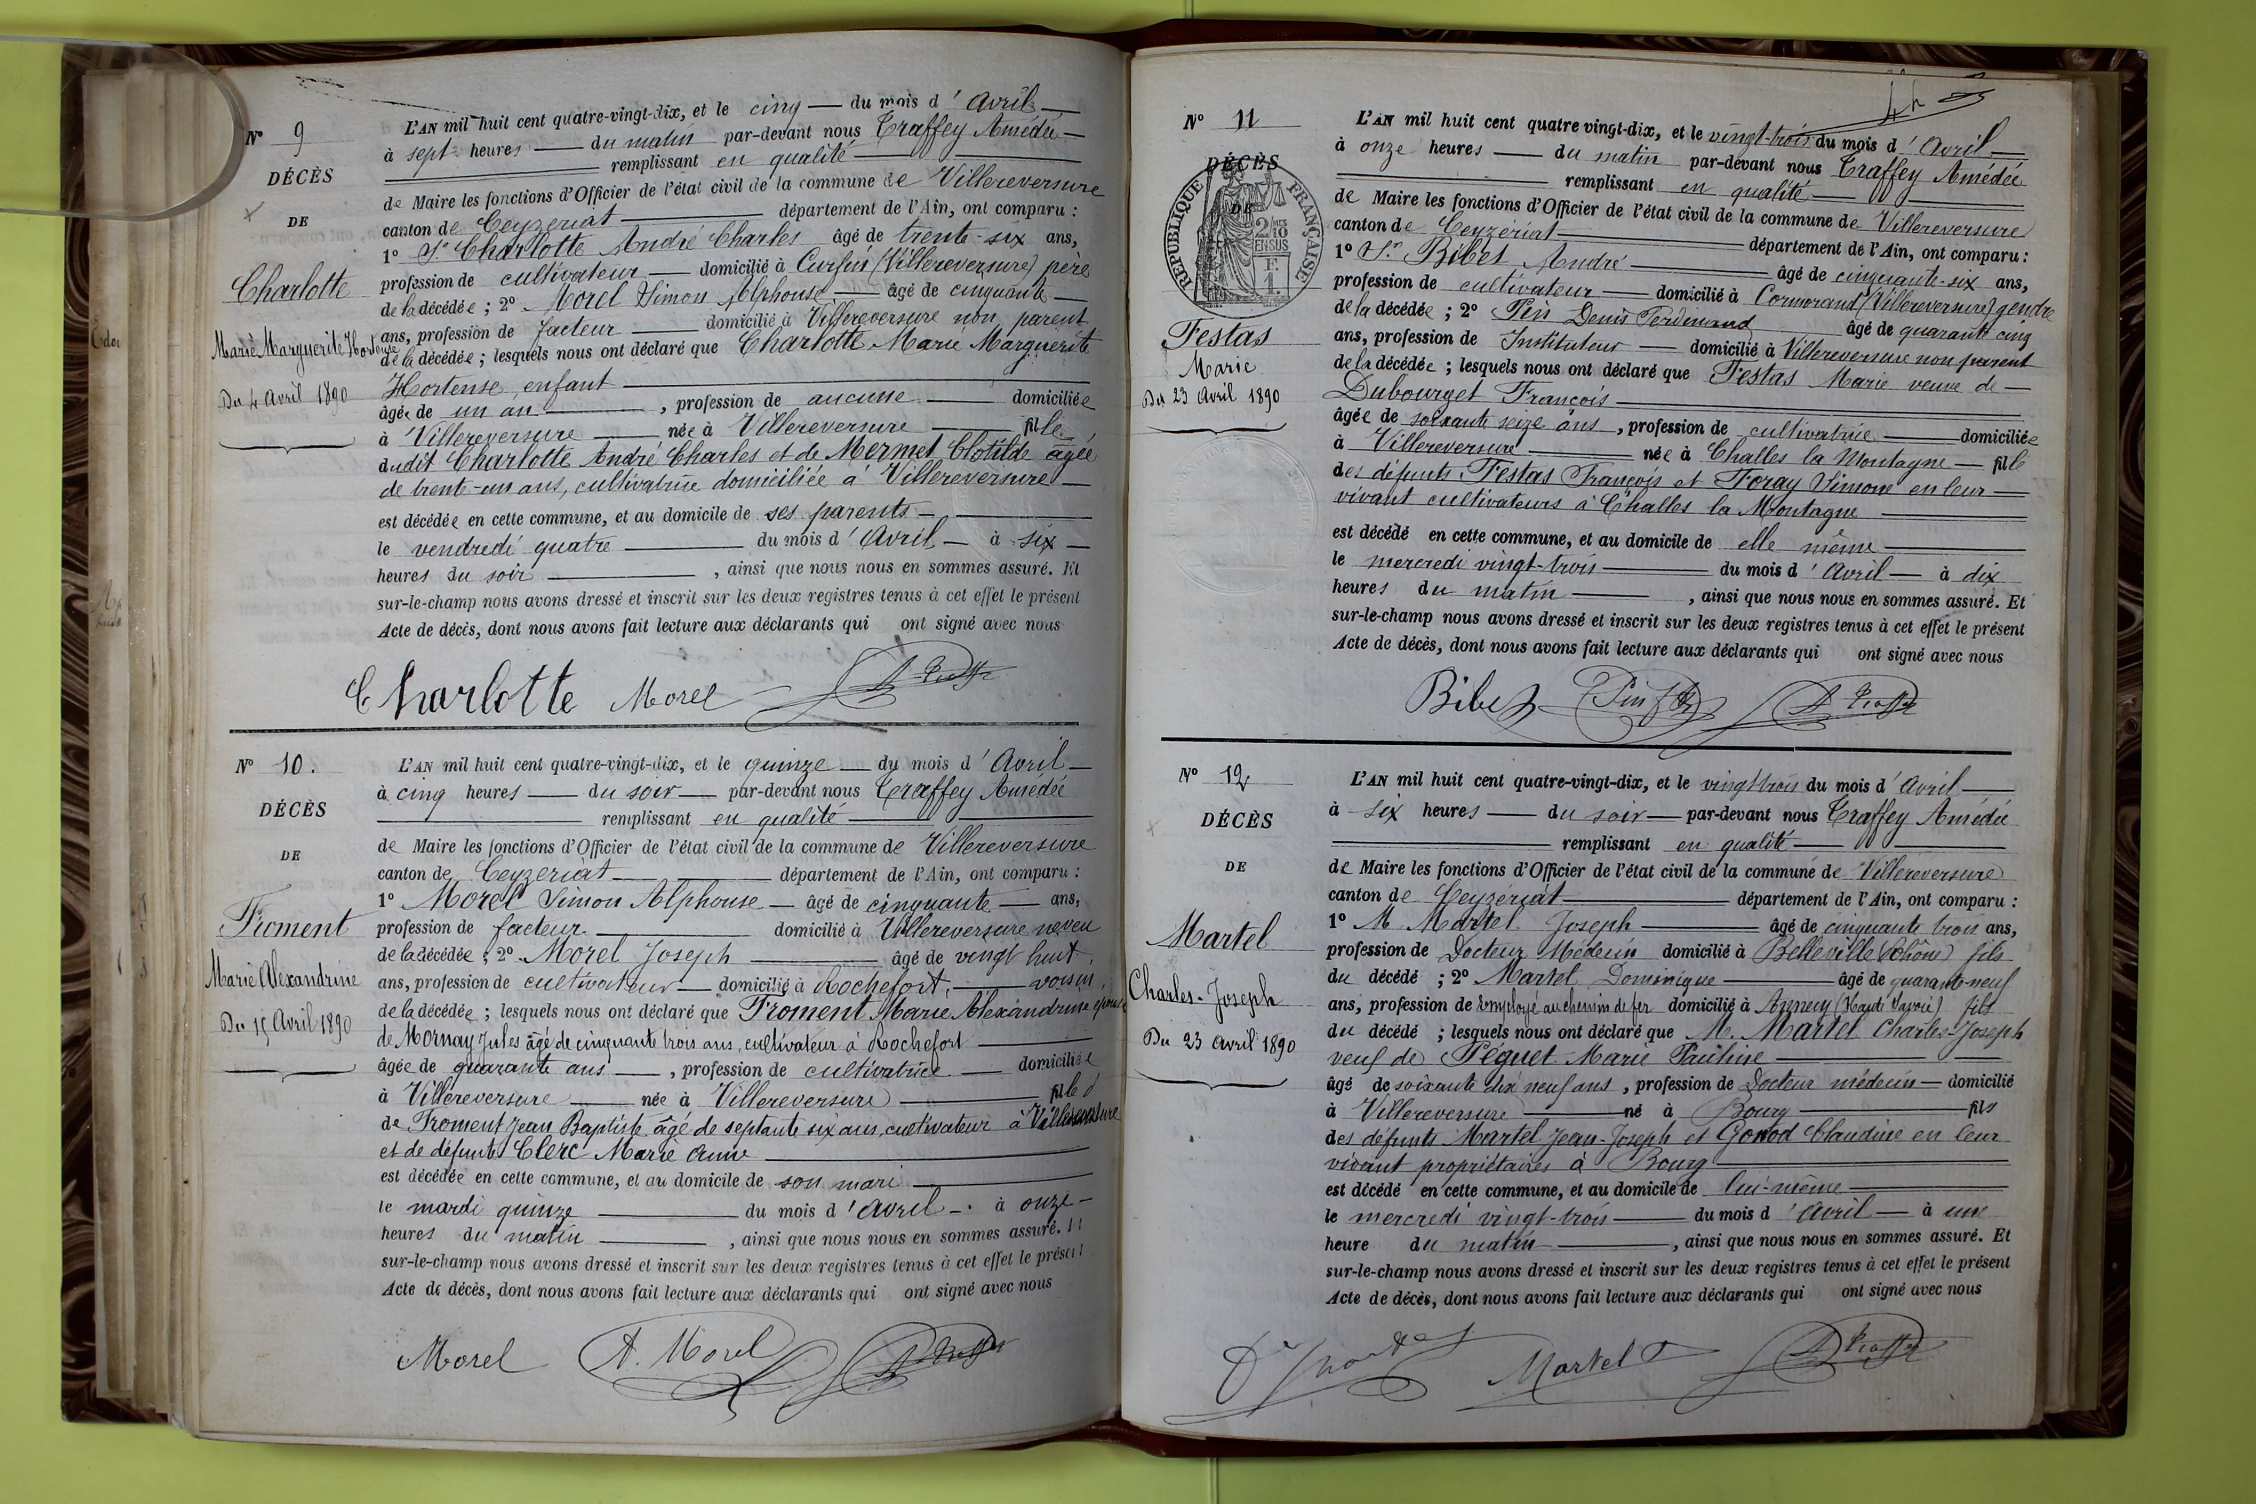 N° 9
DÉCÈS
DE
Charlotte
Marie Marguerite Hortense
Du 4 Avril 1890
L'AN mil huit cent quatre-vingt-dix, et le cinq du mois d'Avril
à sept heures du matin par-devant nous Traffey Amédée
remplissant en qualité
de Maire les fonctions d'Officier de l'état civil de la commune de Villereversure
canton de Ceyzériat département de l'Ain, ont comparu :
1° Sr Charlotte André Charles âgé de trente-six ans,
profession de cultivateur domicilié à Curfin (Villereversure) père
de la décédée ; 2° Morel Simon Alphonse âgé de cinquante
ans, profession de facteur domicilié à Villereversure non parent
de la décédée ; lesquels nous ont déclaré que Charlotte Marie Marguerite
Hortense, enfant
âgée de un an , profession de aucune domiciliée
à Villereversure née à Villereversure fille
dudit Charlotte André Charles et de Mermet Clotilde âgée
de trente-un ans, cultivatrice domiciliée à Villereversure
est décédée en cette commune, et au domicile de ses parents
le vendredi quatre du mois d'Avril à six
heures du soir , ainsi que nous nous en sommes assuré. Et
sur-le-champ nous avons dressé et inscrit sur les deux registres tenus à cet effet le présent
Acte de décès, dont nous avons fait lecture aux déclarants qui ont signé avec nous
Charlotte Morel
N° 10.
DÉCÈS
DE
Froment
Marie Alexandrine
Du 15 Avril 1890
L'AN mil huit cent quatre-vingt-dix, et le quinze du mois d'Avril
à cinq heures du soir par-devant nous Traffey Amédée
remplissant en qualité
de Maire les fonctions d'Officier de l'état civil de la commune de Villereversure
canton de Ceyzériat département de l'Ain, ont comparu :
1° Morel Simon Alphonse âgé de cinquante ans,
profession de facteur domicilié à Villereversure neveu
de la décédée ; 2° Morel Joseph âgé de vingt huit
ans, profession de cultivateur domicilié à Rochefort, voisin
de la décédée ; lesquels nous ont déclaré que Froment Marie Alexandrine épouse
de Mornay Jules âgé de cinquante trois ans, cultivateur à Rochefort
âgée de quarante ans , profession de cultivatrice domiciliée
à Villereversure née à Villereversure fille
de Froment Jean Baptiste âgé de septante six ans, cultivateur à Villereversure
et de défunte Clerc Marie Anne
est décédée en cette commune, et au domicile de son mari
le mardi quinze du mois d'Avril à onze
heures du matin , ainsi que nous nous en sommes assuré. Et
sur-le-champ nous avons dressé et inscrit sur les deux registres tenus à cet effet le présent
Acte de décès, dont nous avons fait lecture aux déclarants qui ont signé avec nous
Morel A. Morel
N° 11
DÉCÈS
DE
RÉPUBLIQUE FRANÇAISE
2/10 EN SUS
Festas
Marie
Du 23 Avril 1890
L'AN mil huit cent quatre vingt-dix, et le vingt-trois du mois d'Avril
à onze heures du matin par-devant nous Traffey Amédée
remplissant en qualité
de Maire les fonctions d'Officier de l'état civil de la commune de Villereversure
canton de Ceyzériat département de l'Ain, ont comparu :
1° Sr Bibet André âgé de cinquante-six ans,
profession de cultivateur domicilié à Cormorand (Villereversure) gendre
de la décédée ; 2° Pin Denis Ferdinand âgé de quarante cinq
ans, profession de Instituteur domicilié à Villereversure non parent
de la décédée ; lesquels nous ont déclaré que Festas Marie veuve de
Dubourget François
âgée de soixante seize ans , profession de cultivatrice domiciliée
à Villereversure née à Challes la Montagne fille
des défunts Festas François et Foray Simone en leur
vivant cultivateurs à Challes la Montagne
est décédé en cette commune, et au domicile de elle même
le mercredi vingt-trois du mois d'Avril à dix
heures du matin , ainsi que nous nous en sommes assuré. Et
sur-le-champ nous avons dressé et inscrit sur les deux registres tenus à cet effet le présent
Acte de décès, dont nous avons fait lecture aux déclarants qui ont signé avec nous
Bibet Pin
N° 12
DÉCÈS
DE
Martel
Charles-Joseph
Du 23 Avril 1890
L'AN mil huit cent quatre-vingt-dix, et le vingt trois du mois d'Avril
à six heures du soir par-devant nous Traffey Amédée
remplissant en qualité
de Maire les fonctions d'Officier de l'état civil de la commune de Villereversure
canton de Ceyzériat département de l'Ain, ont comparu :
1° M. Martel Joseph âgé de cinquante trois ans,
profession de Docteur Médecin domicilié à Belleville (Rhône) fils
du décédé ; 2° Martel Dominique âgé de quarante-neuf
ans, profession de Employé au chemin de fer domicilié à Annecy (Haute Savoie) fils
du décédé ; lesquels nous ont déclaré que M. Martel Charles-Joseph
veuf de Péguet Marie Pauline
âgé de soixante dix neuf ans , profession de Docteur médecin domicilié
à Villereversure né à Bourg fils
des défunts Martel Jean-Joseph et Gonod Claudine en leur
vivant propriétaires à Bourg
est décédé en cette commune, et au domicile de lui-même
le mercredi vingt-trois du mois d'Avril à une
heure du matin , ainsi que nous nous en sommes assuré. Et
sur-le-champ nous avons dressé et inscrit sur les deux registres tenus à cet effet le présent
Acte de décès, dont nous avons fait lecture aux déclarants qui ont signé avec nous
Martel